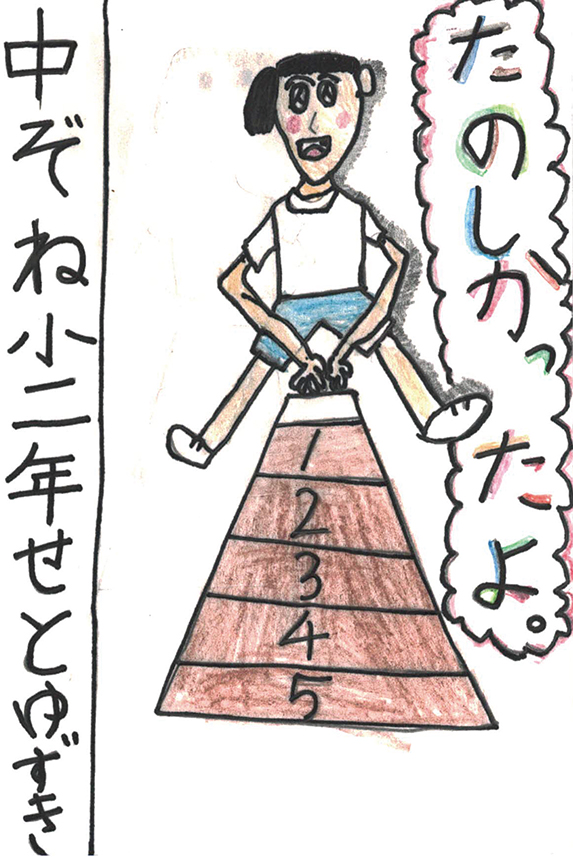 たのしかったよ。
1
2
3
4
5
中ぞね小二年せとゆずき